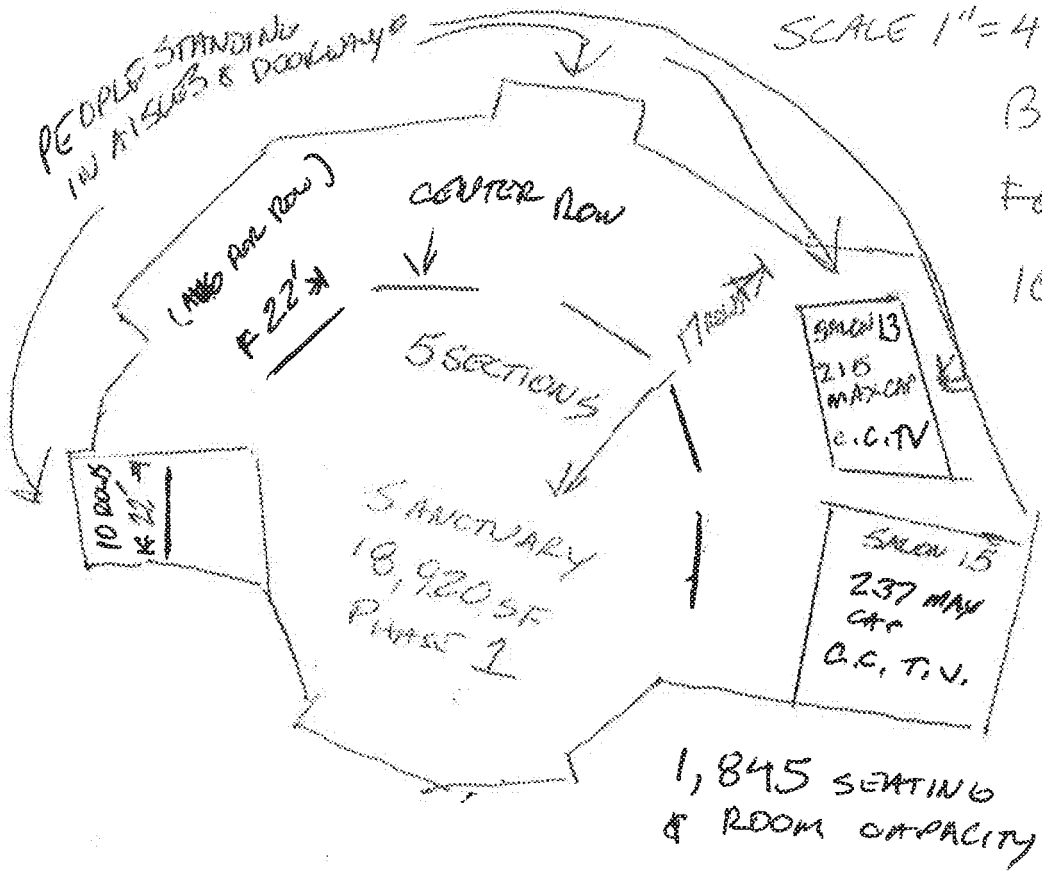 PEOPLE STANDING
IN AISLES & DOORWAYS
SCALE 1" = 4
B
10
CENTER ROW
PER ROW)
22'
5 SECTIONS
SALON 13
215
MAX CAP
C.C. TV
10 ROWS
22'
SANCTUARY
18,920 SF
PHASE 1
SALON 15
237 MAX
CAP
C.C. T.V.
1,845 SEATING
& ROOM CAPACITY